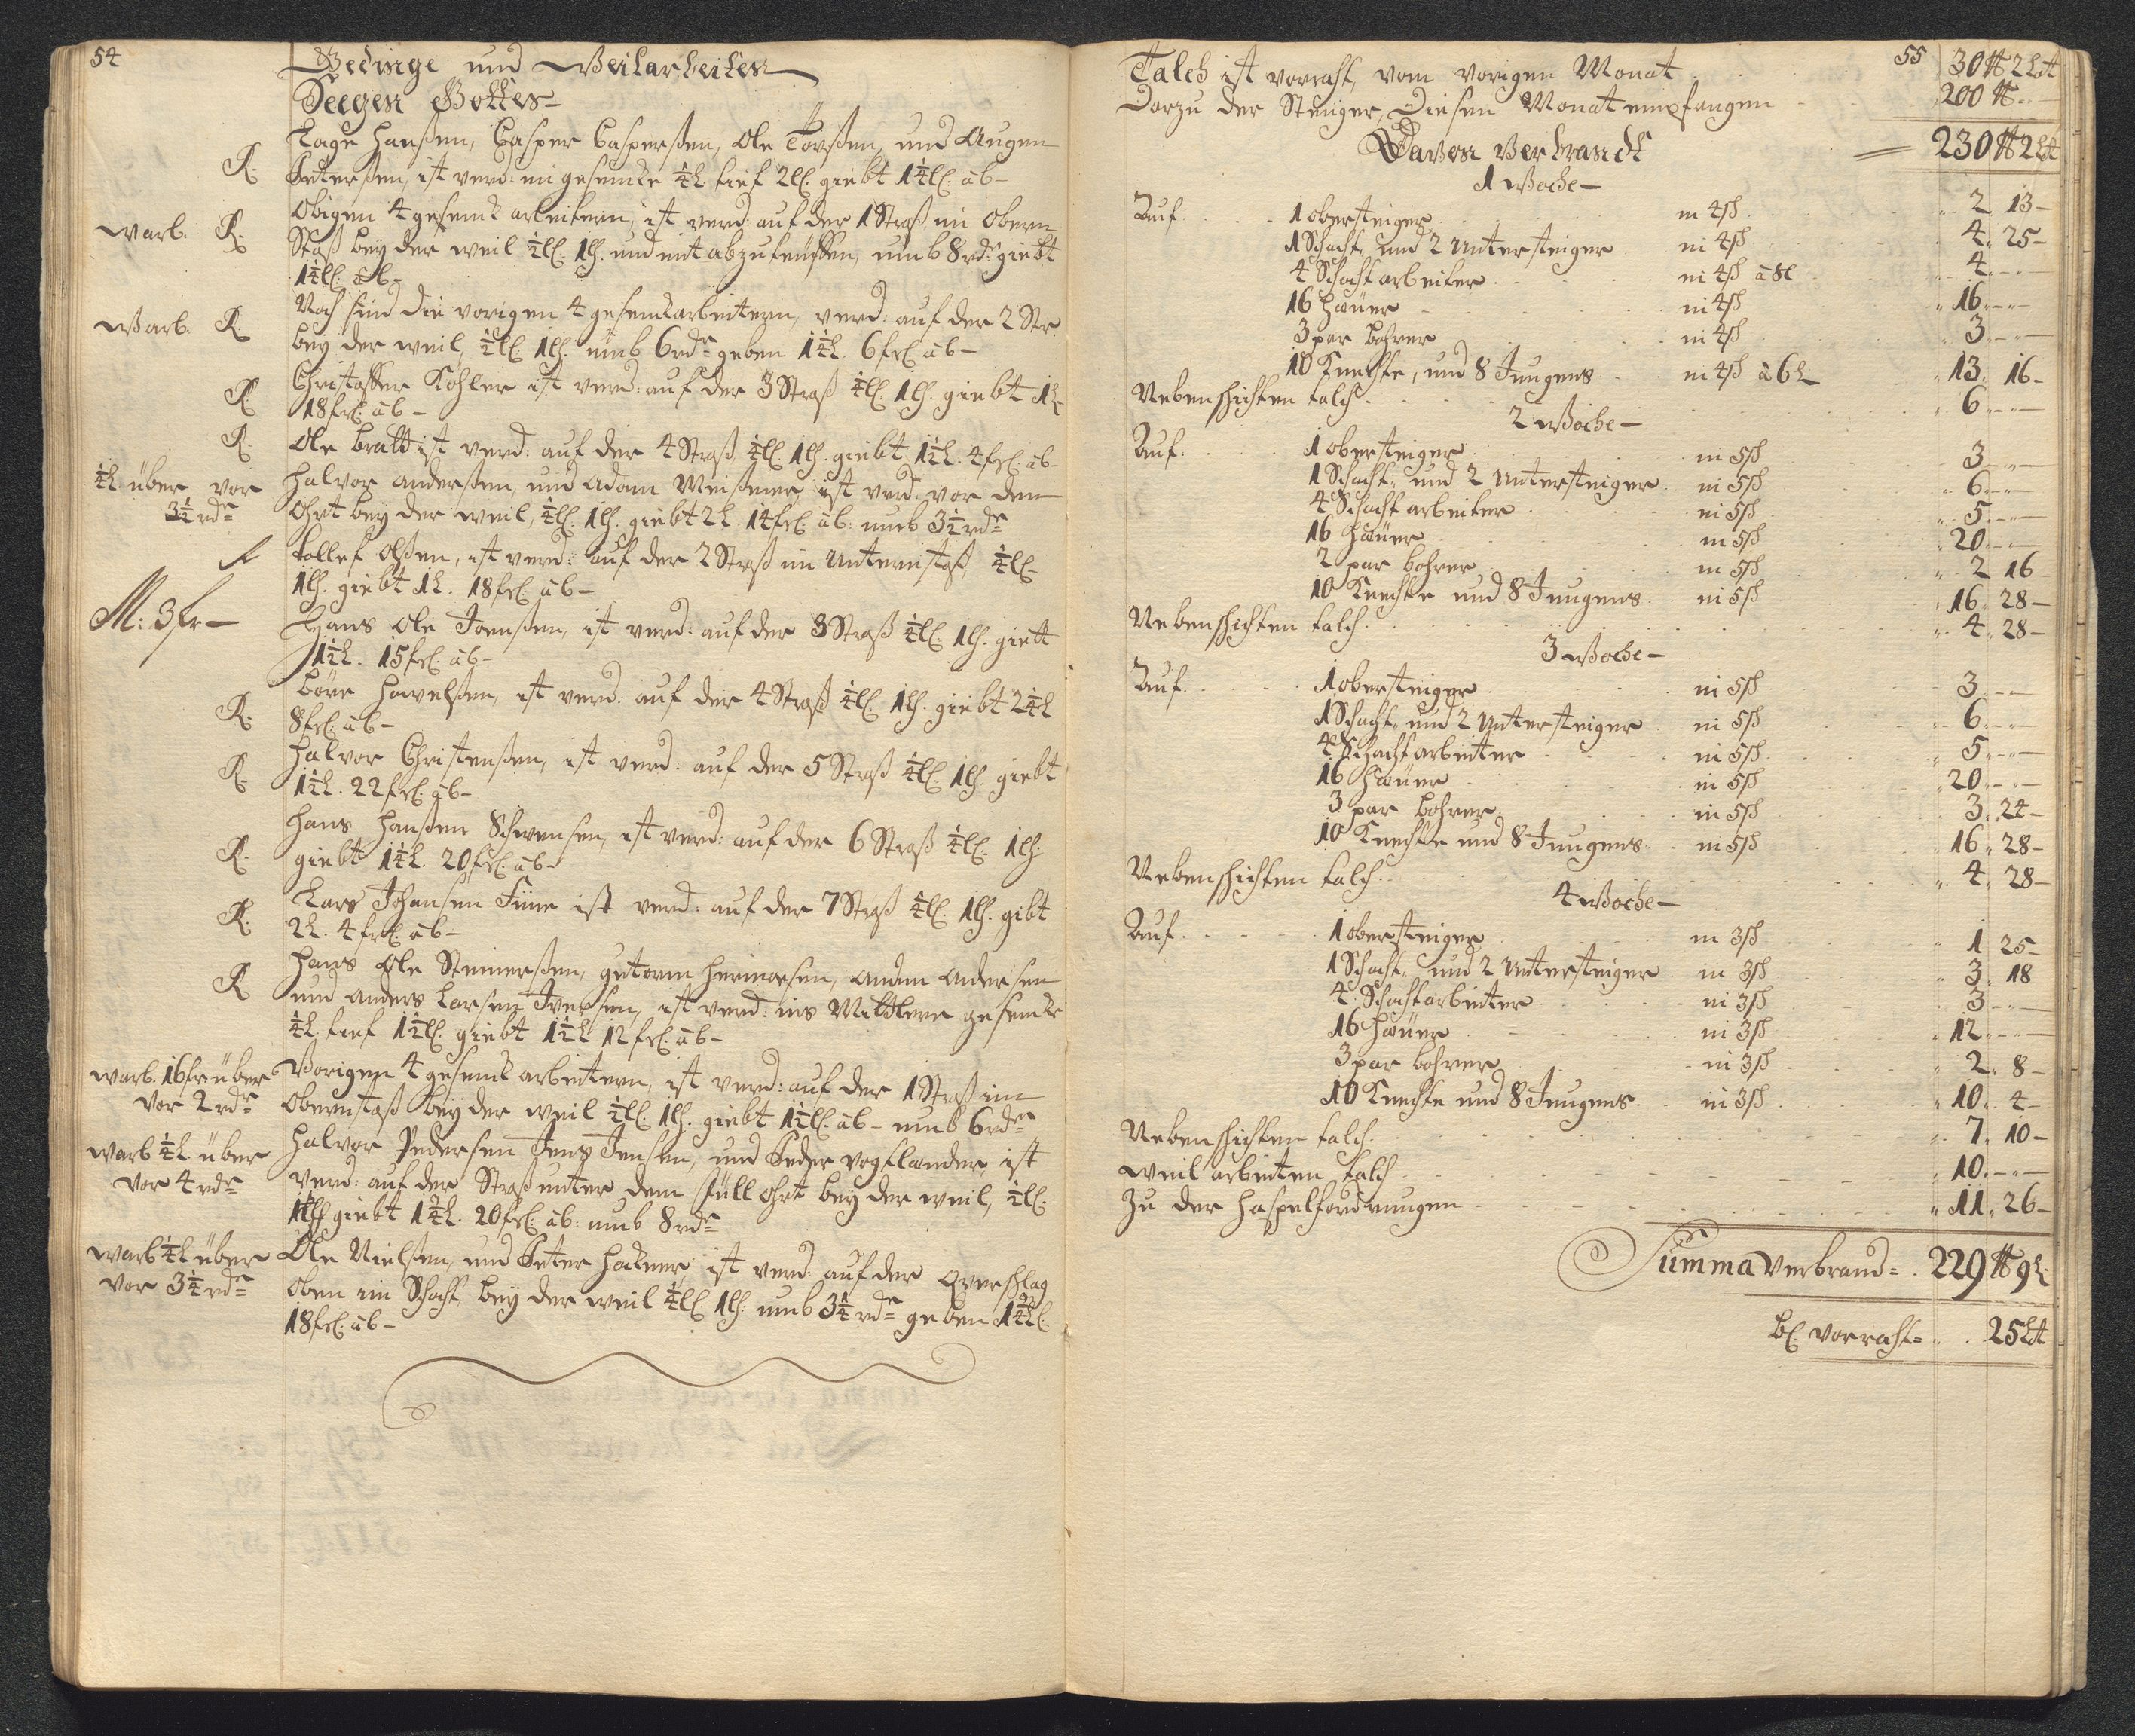 54
Gedinge und Weilarbeiten
Seegen Gottes
Lage Hanßen, Casper Casperßen, Ole Torßen, und Augen
R. Peterßen, ist verd: im gesencke ¼L. tief 2ll. giebt 1¼ll. ab
Obigen 4 gesenck arbeitern, ist verd: auf der 1 Straß im Obern
warb. R. Straß bey der weil ½ll. 1lh. und mit abzuteuffen, umb 8rdr giebt
1¼ll. ab
Noch sind die vorigen 4 gesenckarbeitern, verd: auf der 2 Str
Warb. R. bey der weil, ½ll. 1lh. umb 6rdr geben 1½L. 6frl. ab
Christoffer Kohler ist verd: auf der 3 Straß ¼ll. 1lh. giebt 1L
R. 18frl. ab
R. Ole Bratt ist verd: auf der 4 Straß ¼ll. 1lh. giebt 1½L. 4frl. ab
¼L. über vor Halvor Anderßen, und Adam Meißener, ist verd: vor dem
3½rdr Ohrt bey der weil, ¼ll. 1lh. giebt 2L. 14frl. ab: umb 3½rdr
Tollef Olßen, ist verd: auf der 2 Straß im Unternstoß, ¼ll.
1lh. giebt 1L. 18frl. ab
M: 3fr Hans Ole Joenßen, ist verd: auf der 3 Straß ¼ll. 1lh. giebt
1½L. 15frl. ab
Böre Hawelßen, ist verd: auf der 4 Straß ¼ll. 1lh. giebt 2¼L
R. 8frl. ab
Halvor Christenßen, ist verd: auf der 5 Straß ¼ll. 1lh. giebt
R. 1½L. 22frl. ab
Hans Hanßen Schwensen, ist verd: auf der 6 Straß ¼ll. 1lh.
R. giebt 1¼L. 20frl. ab
Lars Johansen Fiine ist verd: auf der 7 Straß ¼ll. 1lh. gibt
R. 2L. 4frl. ab
Hans Ole Steinerßen, Guttorm Hermorsen, Anden Andersen
R und Anders Larsen Iversen, ist verd: ins Mittlere gesencke
¼L tief 1½ll. giebt 1½L 12frl. ab
warb. 16fr über Vorigen 4 gesenck arbeitern, ist verd: auf der 1 Straß im
vor 2rdr Obernstoß bey der weil ½ll. 1lh. giebt 1½ll. ab umb 6rdr
warb ¼L. über Halvor Pedersen Jens Jensen, und Peder Vogtlander ist
vor 4rdr verd: auf der Straß unter dem füll ohrt bey der weil, ½ll.
1lh giebt 1¼L. 20frl. ab: umb 8rdr
warb ¼L über Ole Nielßen, und Peter Hackner, ist verd: auf der Qverschlag
vor 3¼rdr oben im Schacht bey der weil ¼ll. 1lh: umb 3¼rdr geben 1¼L.
18frl. ab
55
Talch ist vorrath, vom vorigen Monat 30 ℔ 2Lt
Darzu der Steiger, Diesen Monat empfangen 200 ℔
230 ℔ 2Lt
Davon Verbrandt
1 Woche
Auf. 1 obersteiger in 4ß 2 13
1 Schacht, und 2 Untersteiger in 4ß 4 25
4 Schachtarbeiter in 4ß a 8L 4
16 Häüer in 4ß 16
3 par bohrer in 4ß 3
10 Knechte, und 8 Jungens in 4ß a 6L 13 16
Nebenschichten talch 6
2 Woche
Auf. 1 obersteiger in 5ß 3
1 Schacht, und 2 Untersteiger in 5ß 6
4 Schacht arbeiter in 5ß 5
16 Häüer in 5ß 20
2 par bohrer in 5ß 2 16
10 Knechte und 8 Jungens in 5ß 16 28
Nebenschichten talch 4 28
3 Woche
Auf. 1 obersteiger in 5ß 3
1 Schacht, und 2 Untersteiger in 5ß 6
4 Schachtarbeiter in 5ß 5
16 Häüer in 5ß 20
3 par bohrer in 5ß 3 24
10 Knechte und 8 Jungens in 5ß 16 28
Nebenschichten talch 4 28
4 Woche
Auf. 1 obersteiger in 3ß 1 25
1 Schacht, und 2 Untersteiger in 3ß 3 18
4 Schachtarbeiter in 3ß 3
16 Häüer in 3ß 12
3 par bohrer in 3ß 2 8
10 Knechte und 8 Jungens in 3ß 10 4
Nebenschichten talch 7 10
Weil arbeiten talch 10
Zu der Haspelfordrungen 11 26
Summa Verbrand = 229 ℔ 9L.
bl. Vorrath = 25Lt